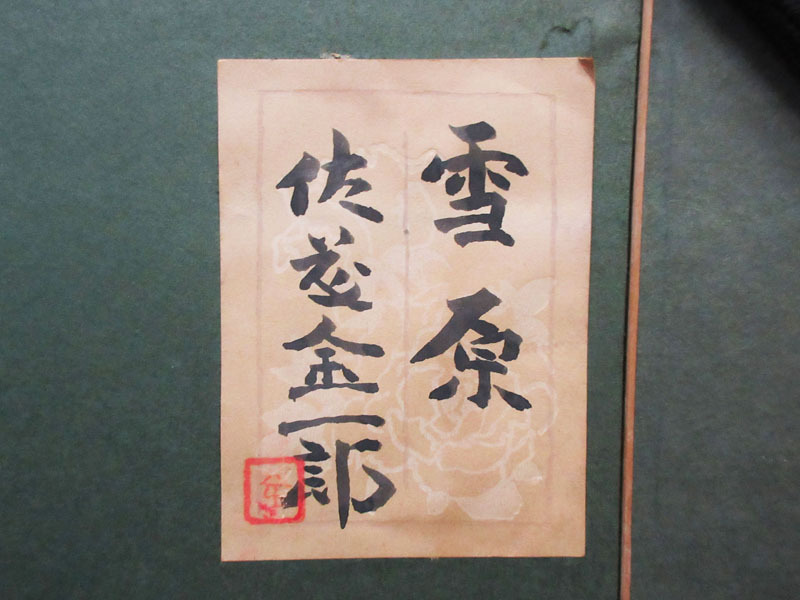 雪原
佐藤金一郎